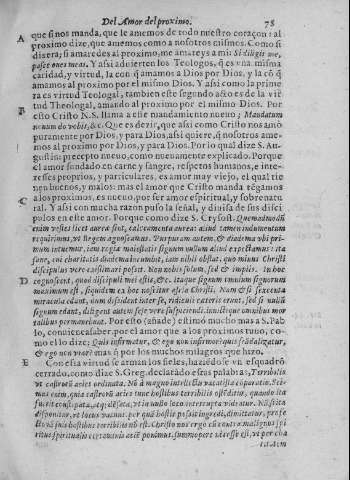 Del Amor del proximo. 78
A que si nos manda, que le amemos de todo nuestro coraçon: al
proximo dize, que amemos como a nosotros mismos. Como si
dixera; si amaredes al proximo, me amareys a mi: Si diligis me,
pascite oues meas. Y assi aduierten los Teologos, q̃ es vna misma
caridad, y virtud, la con q̃ amamos a Dios por Dios, y la cõ q̃
amamos al proximo por el mismo Dios. Y assi como la prime
ra es virtud Teologal, tambien este segundo acto es de la vir
tud Theologal, amando al proximo por el mismo Dios. Por
B esto Cristo N.S. llama a este mandamiento nueuo; Mandatum
nouum do vobis, &c. Que es dezir, que assi como Cristo nos amò
puramente por Dios, y para Dios, assi quiere, q̃ nosotros ame-
mos al proximo por Dios, y para Dios. Por lo qual dize S. Au-
gustin: precepto nueuo, como nueuamente explicado. Porque
el amor fundado en carne y sangre, respetos humanos, e inte-
resses proprios, y particulares, es amor muy viejo, el qual tie-
nen buenos, y malos: mas el amor que Cristo manda tẽgamos
C a los proximos, es nueuo, por ser amor espiritual, y sobrenatu
ral. Y assi con mucha razon puso la señal, y diuisa de sus disci
pulos en este amor. Porque como dize S. Crysost. Quemadmodũ
enim vestes licet aurea sint, calceamenta aurea: aliud tamen indumentum
requirimus, vt Regem agnoscamus. Purpuram autem, & diadema vbi pri-
mum intuemur, iam regiæ maiestatis signum nullum aliud expectamus: ita
sane, vbi charitatis diadema incumbit, iam nihil obstat. quo minus Christi
discipulus vere existimari possit. Non nobis solum, sed & impijs. In hoc
D cognoscent, quod discipuli mei estis, &c. itaque signum omnium signorum
maximum est, siquidem ex hoc noscitur esse se Christi. Nam & si sexcenta
miracula edant, dum dissident inter se, ridiculi cæteris erunt, sed si nullũ
signum edant, diligant autem sese vere suspiciendi, inuictique omnibus mor
talibus permanebunt. Por esto (añade) estimò mucho mas a S. Pab
lo, conuiene a saber, por el amor que a los proximos tuuo, co-
mo el lo dize; Quis infirmatur, & ego non infirmor: quis scãdalizatur,
& ego non vror? mas q̃ por los muchos milagros que hizo.
E Con esta virtud se arman los fieles, haziẽdose vn esquadrõ
cerrado, como dize S. Greg. declarãdo estas palabras, Terribilis
vt castrorũ acies ordinata. Nõ à magno intellectu vacat ista coparatio. Sci-
mus enim, quia castrorũ acies tunc hostibus terribilis ostẽditur, quando ita
fuerit constipata, atq; dẽsata, vt in nullo loco interrupta videatur. Nã si ita
disponitur, vt locus vacuus, per quẽ hostis possit ingredi, dimittatur, profe
cto iã suis hostibus terribilis nõ est. Christo nos ergo cũ contra malignos spi
ritus spiritualis certaminis aciẽ ponimus, summopere necesse est, vt per cha
ritatem